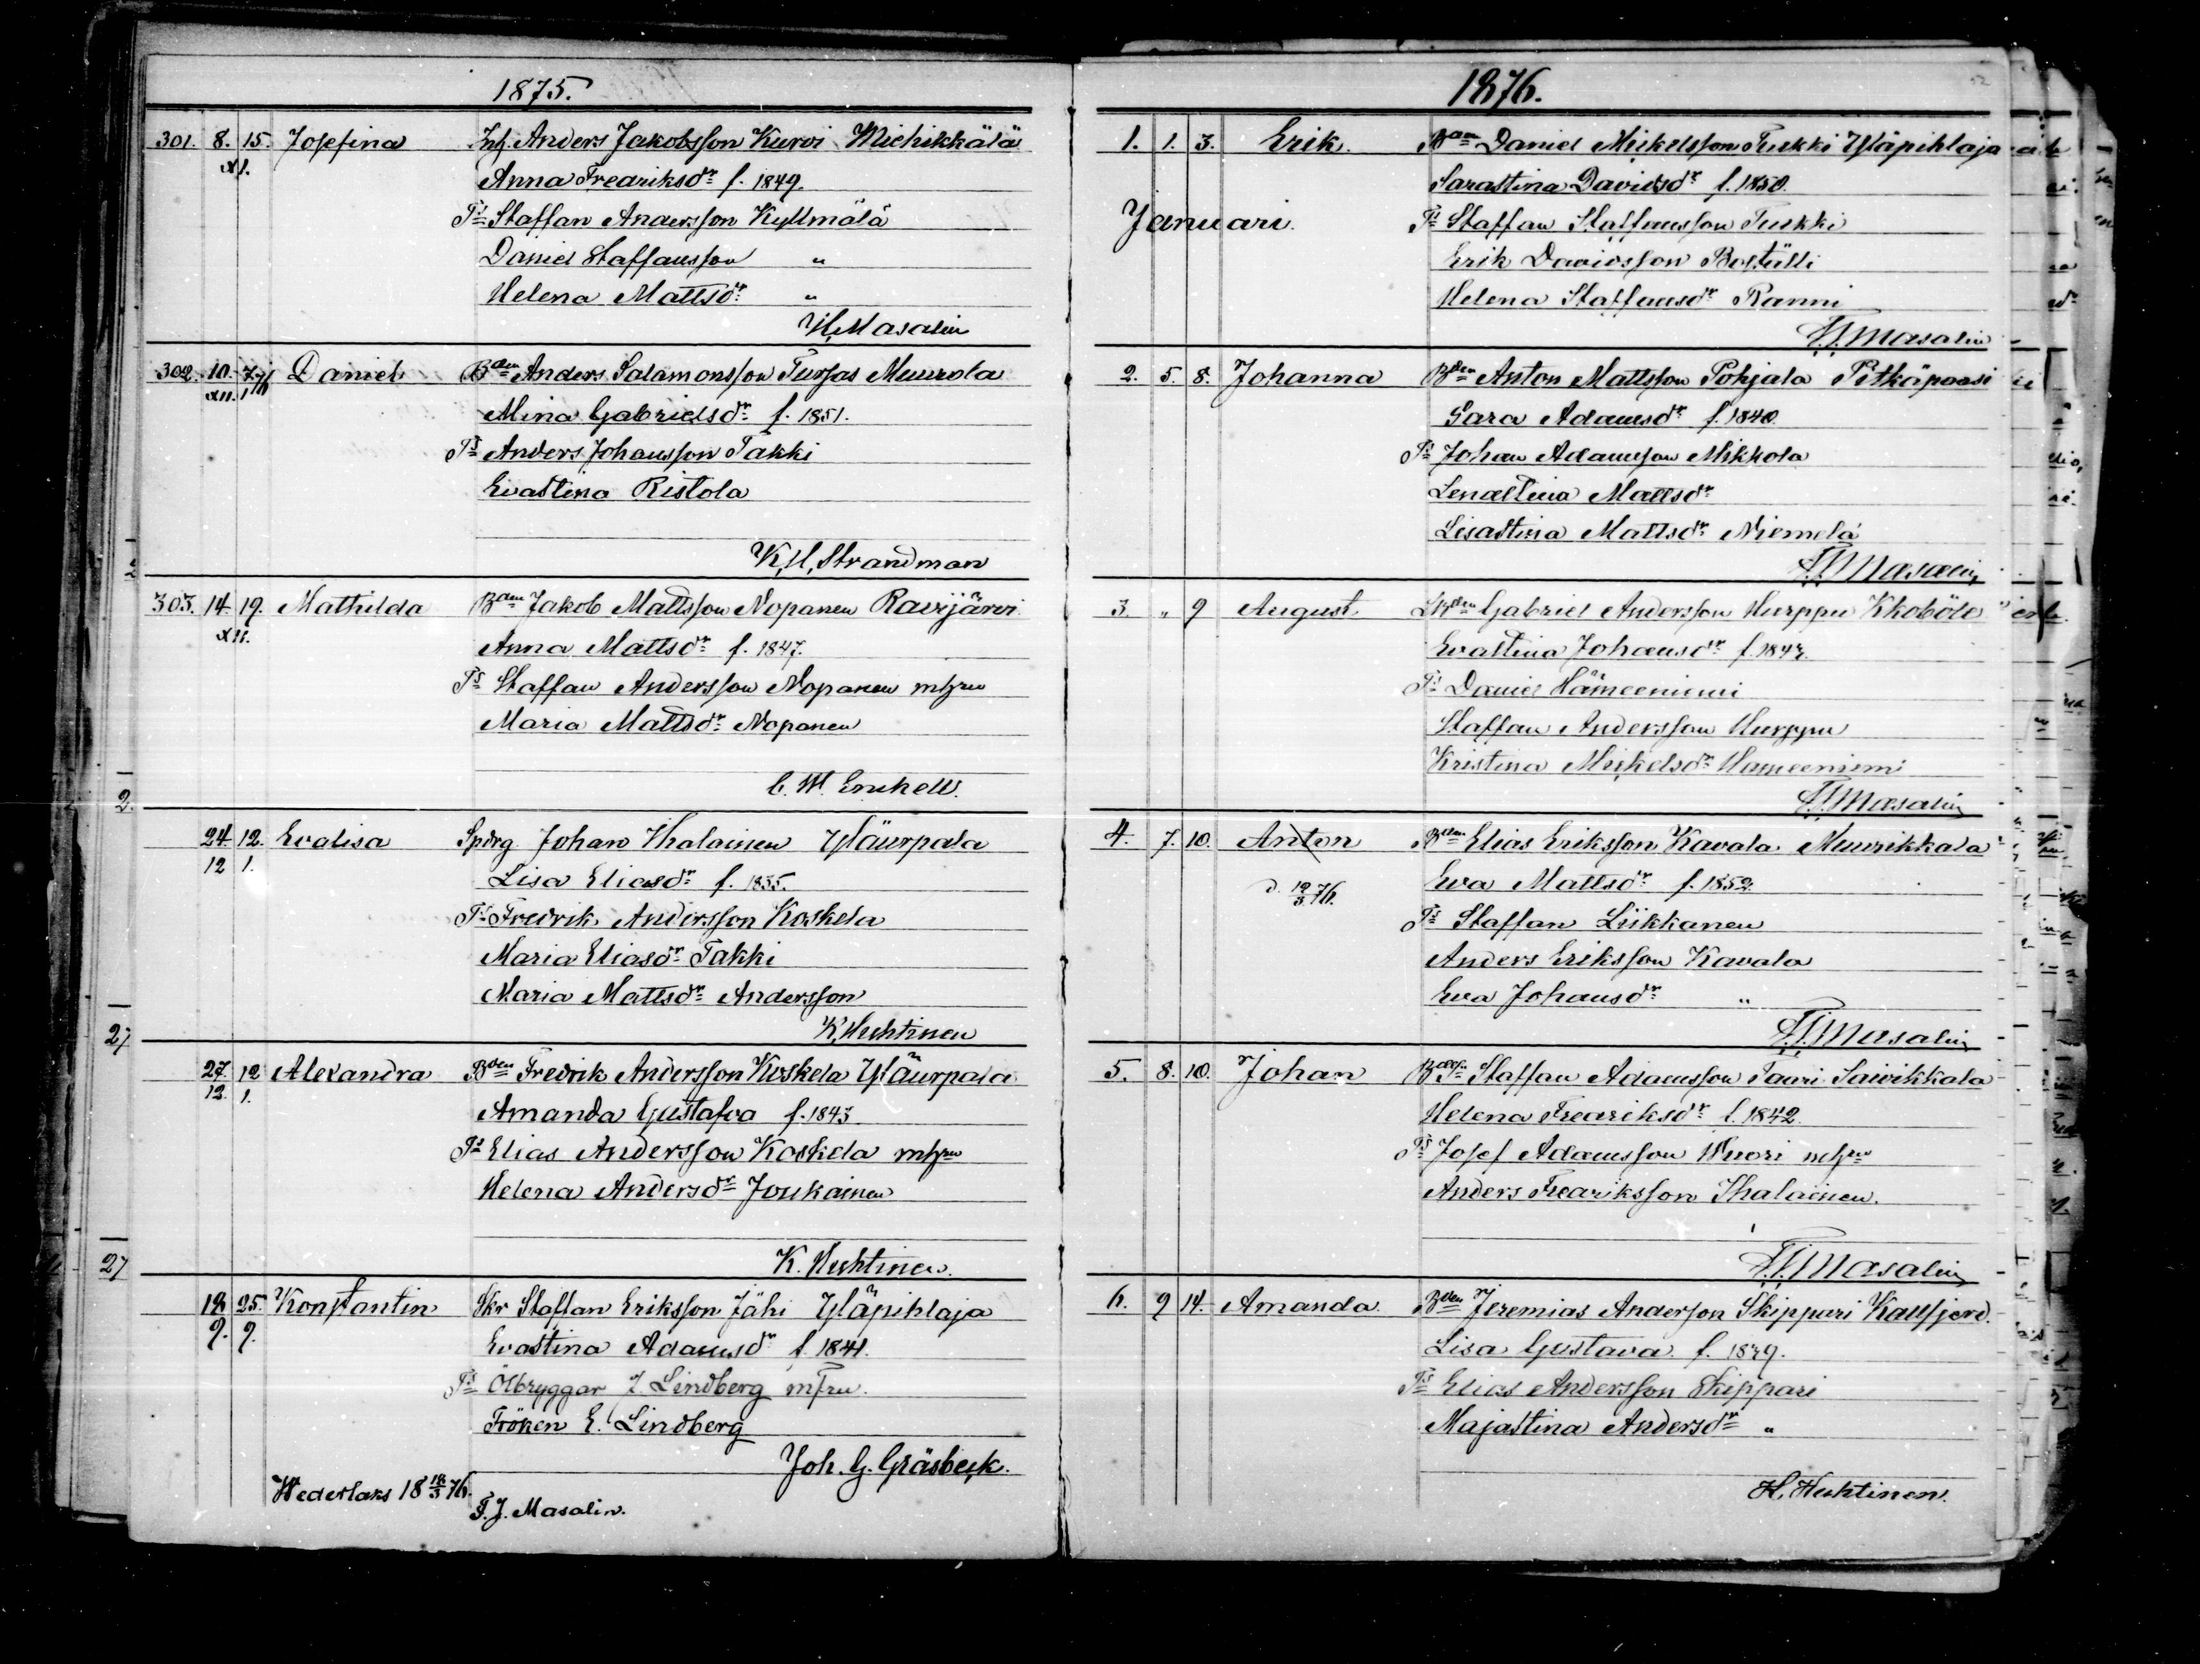 1875.
301. 8. 15. Josefina Inh. Anders Jakobsson Kurvi Miehikkälä
XI. Anna Fredriksdr f. 1849.
Ts Staffan Andersson Kyllmälä
Daniel Staffansson "
Helena Mattsdr "
Masalin
302. 10. Daniel Bdn Anders Salamonsson Tursas Muurola
XII. Mina Gabrielsdr f. 1851.
Ts Anders Johansson Takki
Evastina Ristola
K. H. Strandman
303. 14. 19. Mathilda Bdn Jakob Mattsson Nopanen Ravijärvi
XII. Anna Mattsdr f. 1847.
Ts Staffan Andersson Nopanen m hru
Maria Mattsdr Nopanen
C. W. Enckell.
24. 12. Evalisa Spdrg Johan Ihalainen Yläurpala
12 1. Lisa Eliasdr f. 1835.
Ts Fredrik Andersson Koskela
Maria Eliasdr Takki
Maria Mattsdr Andersson
K. Huhtinen
27. 12 Alexandra Bden Fredrik Andersson Koskela Yläurpala
12. 1. Amanda Gustafva f. 1843
Ts Elias Andersson Koskela m hru
Helena Andersdr Joukainen
K. Huhtinen.
18 25. Konstantin Skr Staffan Eriksson Jähi Yläpihlaja
9. 9. Evastina Adamsdr f. 1841.
Ts Ölbryggar J. Lindberg m Fru.
Fröken E. Lindberg
Joh. G. Gräsbeck.
Wederlaks 18 18/3 76.
F. J. Masalin.
1876.
1. 1. 3. Erik. Bdn Daniel Mickelsson Turkki Yläpihlaja
Sarastina Davidsdr f. 1850.
Januari. Ts Staffan Staffansson Turkki
Erik Davidsson Boställi
Helena Staffansdr Ranni
F. J. Masalin
2. 5. 8. Johanna Bden Anton Mattsson Pohjala Pitkäpaasi
Sara Adamsdr f. 1840.
Ts Johan Adamsson Mikkola
Lenastina Mattsdr
Lisastina Mattsdr Niemelä
F. J. Masalin
3. " 9 August Gabriel Andersson Hurppu
Evastina Johansdr
Ts Daniel Hämeeniemi
Staffan Andersson Hurppu
Kristina Mickelsdr Hameeniemi
F. J. Masalin
4. 7. 10. Anton Bden Elias Eriksson Kavala Muurikkala
d. 12/3 76. Eva Mattsdr f. 1852.
Ts Staffan Liikkanen
Anders Eriksson Kavala
Eva Johansdr "
F. J. Masalin
5. 8. 10. Johan Staffan Adamsson Taari Saivikkala
Helena Fredriksdr f. 1842.
Ts Josef Adamsson Wuori m hru
Anders Fredriksson Ihalainen.
F. J. Masalin
6. 9 14. Amanda. Bden Jeremias Anderson Skippari Kallfjerd.
Lisa Gustava. f.
Ts Elias Andersson Skippari
Majastina Andersdr "
H. Huhtinen.